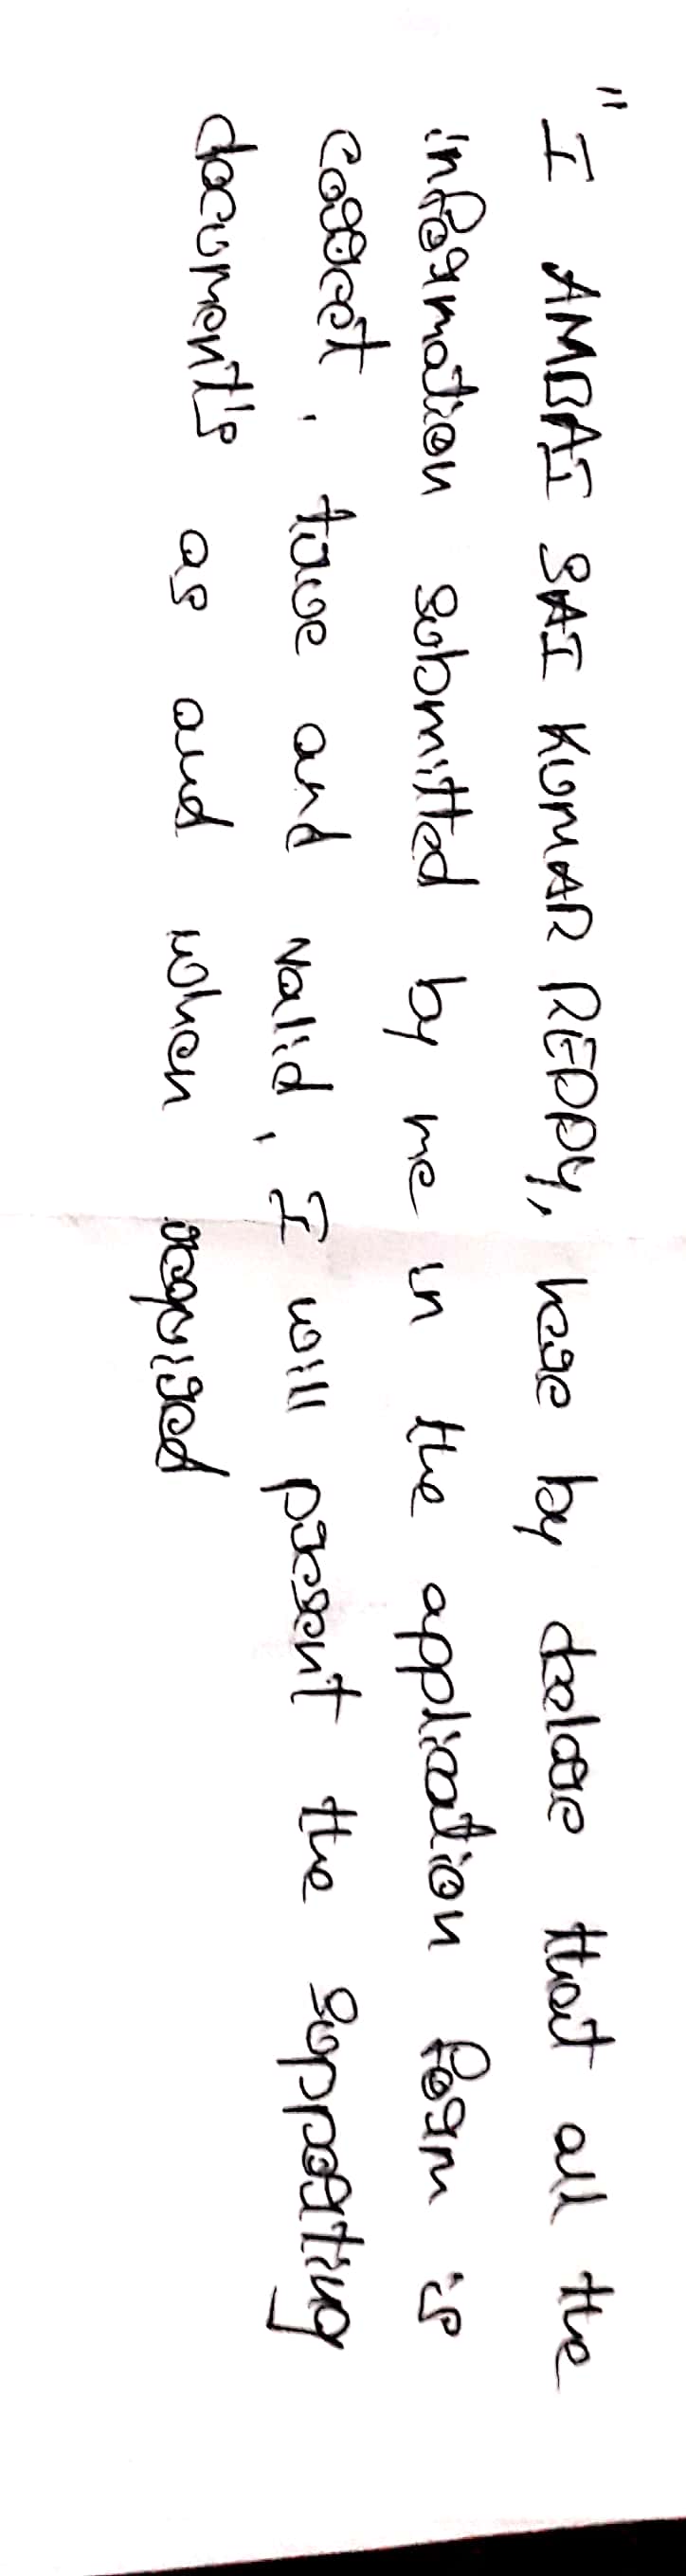 "I AMBAI SAI KUMAR REDDY, here by delare that all the
information submitted by me in the application form is
correct, true and valid, I will present the supporting
document's as and when required